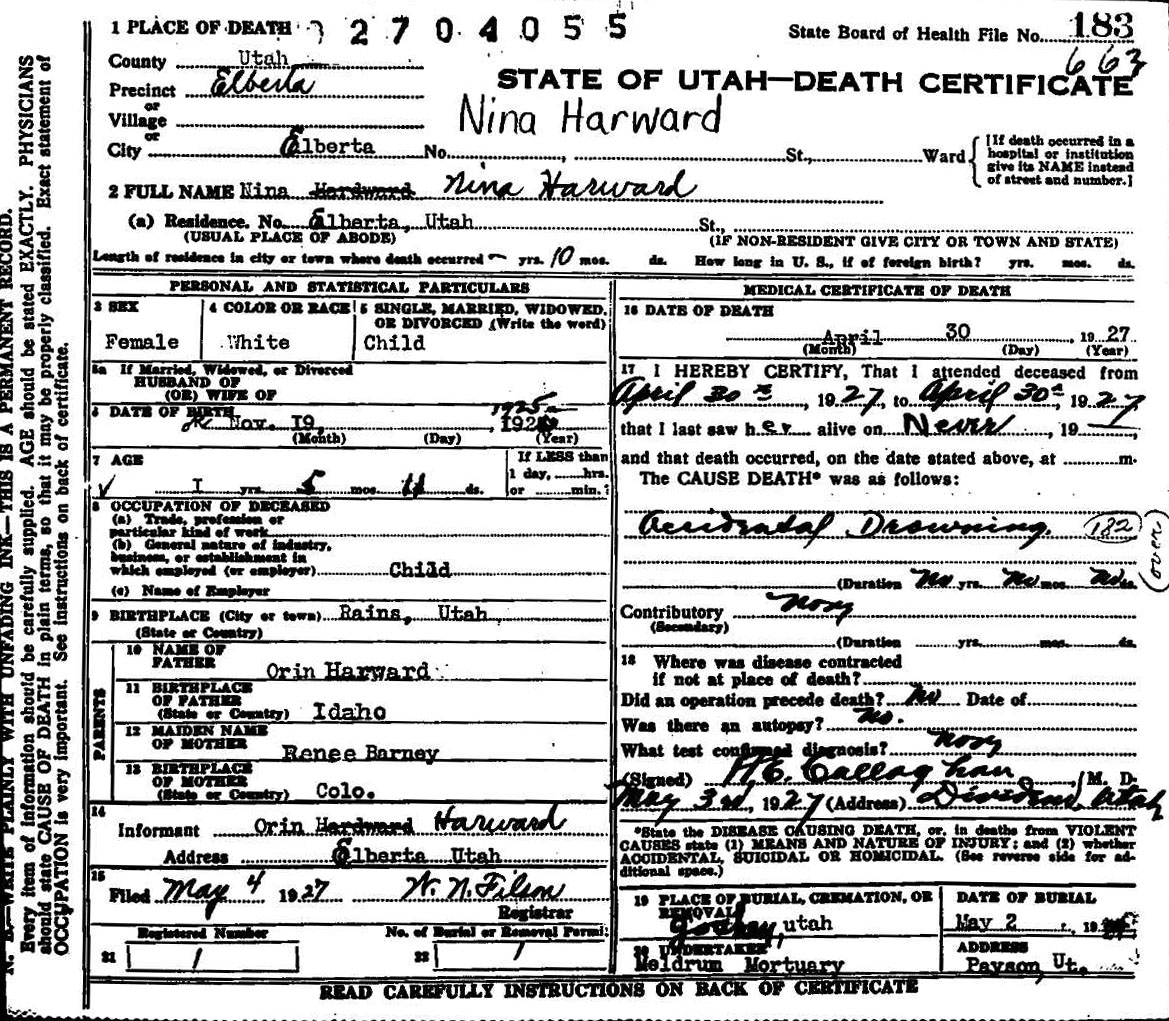 1 PLACE OF DEATH 2704055
State Board of Health File No. 183
663
County Utah
Precinct Elberta
or
Village
or
City Elberta No. , St., Ward
[If death occurred in a
hospital or institution
give its NAME instead
of street and number.]
STATE OF UTAH—DEATH CERTIFICATE
Nina Harward
2 FULL NAME Nina Hardward Nina Harward
(a) Residence. No. Elberta, Utah St.,
(USUAL PLACE OF ABODE) (IF NON-RESIDENT GIVE CITY OR TOWN AND STATE)
Length of residence in city or town where death occurred - yrs. 10 mos. ds. How long in U. S., if of foreign birth? yrs. mos. ds.
PERSONAL AND STATISTICAL PARTICULARS
3 SEX
Female
4 COLOR OR RACE
White
5 SINGLE, MARRIED, WIDOWED,
OR DIVORCED (Write the word)
Child
5a If Married, Widowed, or Divorced
HUSBAND OF
(OR) WIFE OF
6 DATE OF BIRTH 1925
Nov. 19, 192
(Month) (Day) (Year)
7 AGE
I yrs. 5 mos. 11 ds.
If LESS than
1 day, hrs.
or min.?
8 OCCUPATION OF DECEASED
(a) Trade, profession or
particular kind of work
(b) General nature of industry,
business, or establishment in
which employed (or employer) Child
(c) Name of Employer
9 BIRTHPLACE (City or town) Rains, Utah
(State or Country)
PARENTS
10 NAME OF
FATHER Orin Harward
11 BIRTHPLACE
OF FATHER
(State or Country) Idaho
12 MAIDEN NAME
OF MOTHER Renee Barney
13 BIRTHPLACE
OF MOTHER
(State or Country) Colo.
14
Informant Orin Hardward Harward
Address Elberta Utah
15
Filed May 4 1927 W. N. Filson
Registrar
Registered Number No. of Burial or Removal Permit
21 1 22 1
MEDICAL CERTIFICATE OF DEATH
16 DATE OF DEATH
April 30 , 1927
(Month) (Day) (Year)
17 I HEREBY CERTIFY, That I attended deceased from
April 30, 1927, to April 30, 1927
that I last saw her alive on Never, 19
and that death occurred, on the date stated above, at m.
The CAUSE DEATH* was as follows:
Accidental Drowning. 182
(over)
(Duration No yrs. No mos. No ds.
Contributory
(Secondary)
(Duration yrs. mos. ds.
18 Where was disease contracted
if not at place of death?
Did an operation precede death? No Date of
Was there an autopsy? No.
What test confirmed diagnosis?
(Signed) H.E. Callaghan , M. D.
May 3rd, 1927 (Address) Dividend Utah
*State the DISEASE CAUSING DEATH, or, in deaths from VIOLENT
CAUSES state (1) MEANS AND NATURE OF INJURY; and (2) whether
ACCIDENTAL, SUICIDAL OR HOMICIDAL. (See reverse side for ad-
ditional space.)
19 PLACE OF BURIAL, CREMATION, OR
REMOVAL
Goshen, utah
DATE OF BURIAL
May 2 , 19
20 UNDERTAKER
Meldrum Mortuary
ADDRESS
Payson, Ut.
READ CAREFULLY INSTRUCTIONS ON BACK OF CERTIFICATE
N. B.—WRITE PLAINLY WITH UNFADING INK—THIS IS A PERMANENT RECORD.
Every item of information should be carefully supplied. AGE should be stated EXACTLY. PHYSICIANS
should state CAUSE OF DEATH in plain terms, so that it may be properly classified. Exact statement of
OCCUPATION is very important. See instructions on back of certificate.